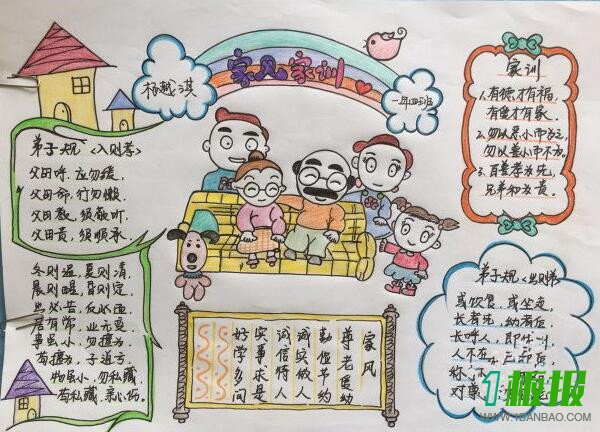 家风家训
杨越淇
一年四班
弟子规《入则孝》
父母呼，应勿缓，
父母命，行勿懒
父母教，须敬听
父母责，须顺承
冬则温，夏则清，
晨则醒，昏则定，
出必告，反必面
居有常，业无变
事虽小，勿擅为
苟擅为，子道亏
物虽小，勿私藏
苟私藏，亲心伤。
家训
1.有德才有福，
有
才有家，
2.勿以恶小而为之，
勿以善小而不为。
3.百善孝为先，
兄弟和为贵。
家风
尊老爱幼
勤俭节约
诚实做人
诚信待人
实事求是
好学多问
弟子规《出则弟》
或饮食，或坐走，
长者先，幼者后，
长呼人，即
人不在
称
对
1板报
WWW.1BANBAO.COM